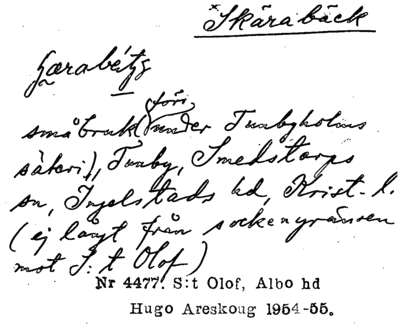 *Skärabäck
småbruk (förr under Tunbyholms
säteri), Tunby, Smedstorps
sn, Ingelstads hd, Krist. l.
(ej långt från sockengränsen
mot S:t Olof)
Nr 4477. S:t Olof, Albo hd
Hugo Areskoug 1954-55.